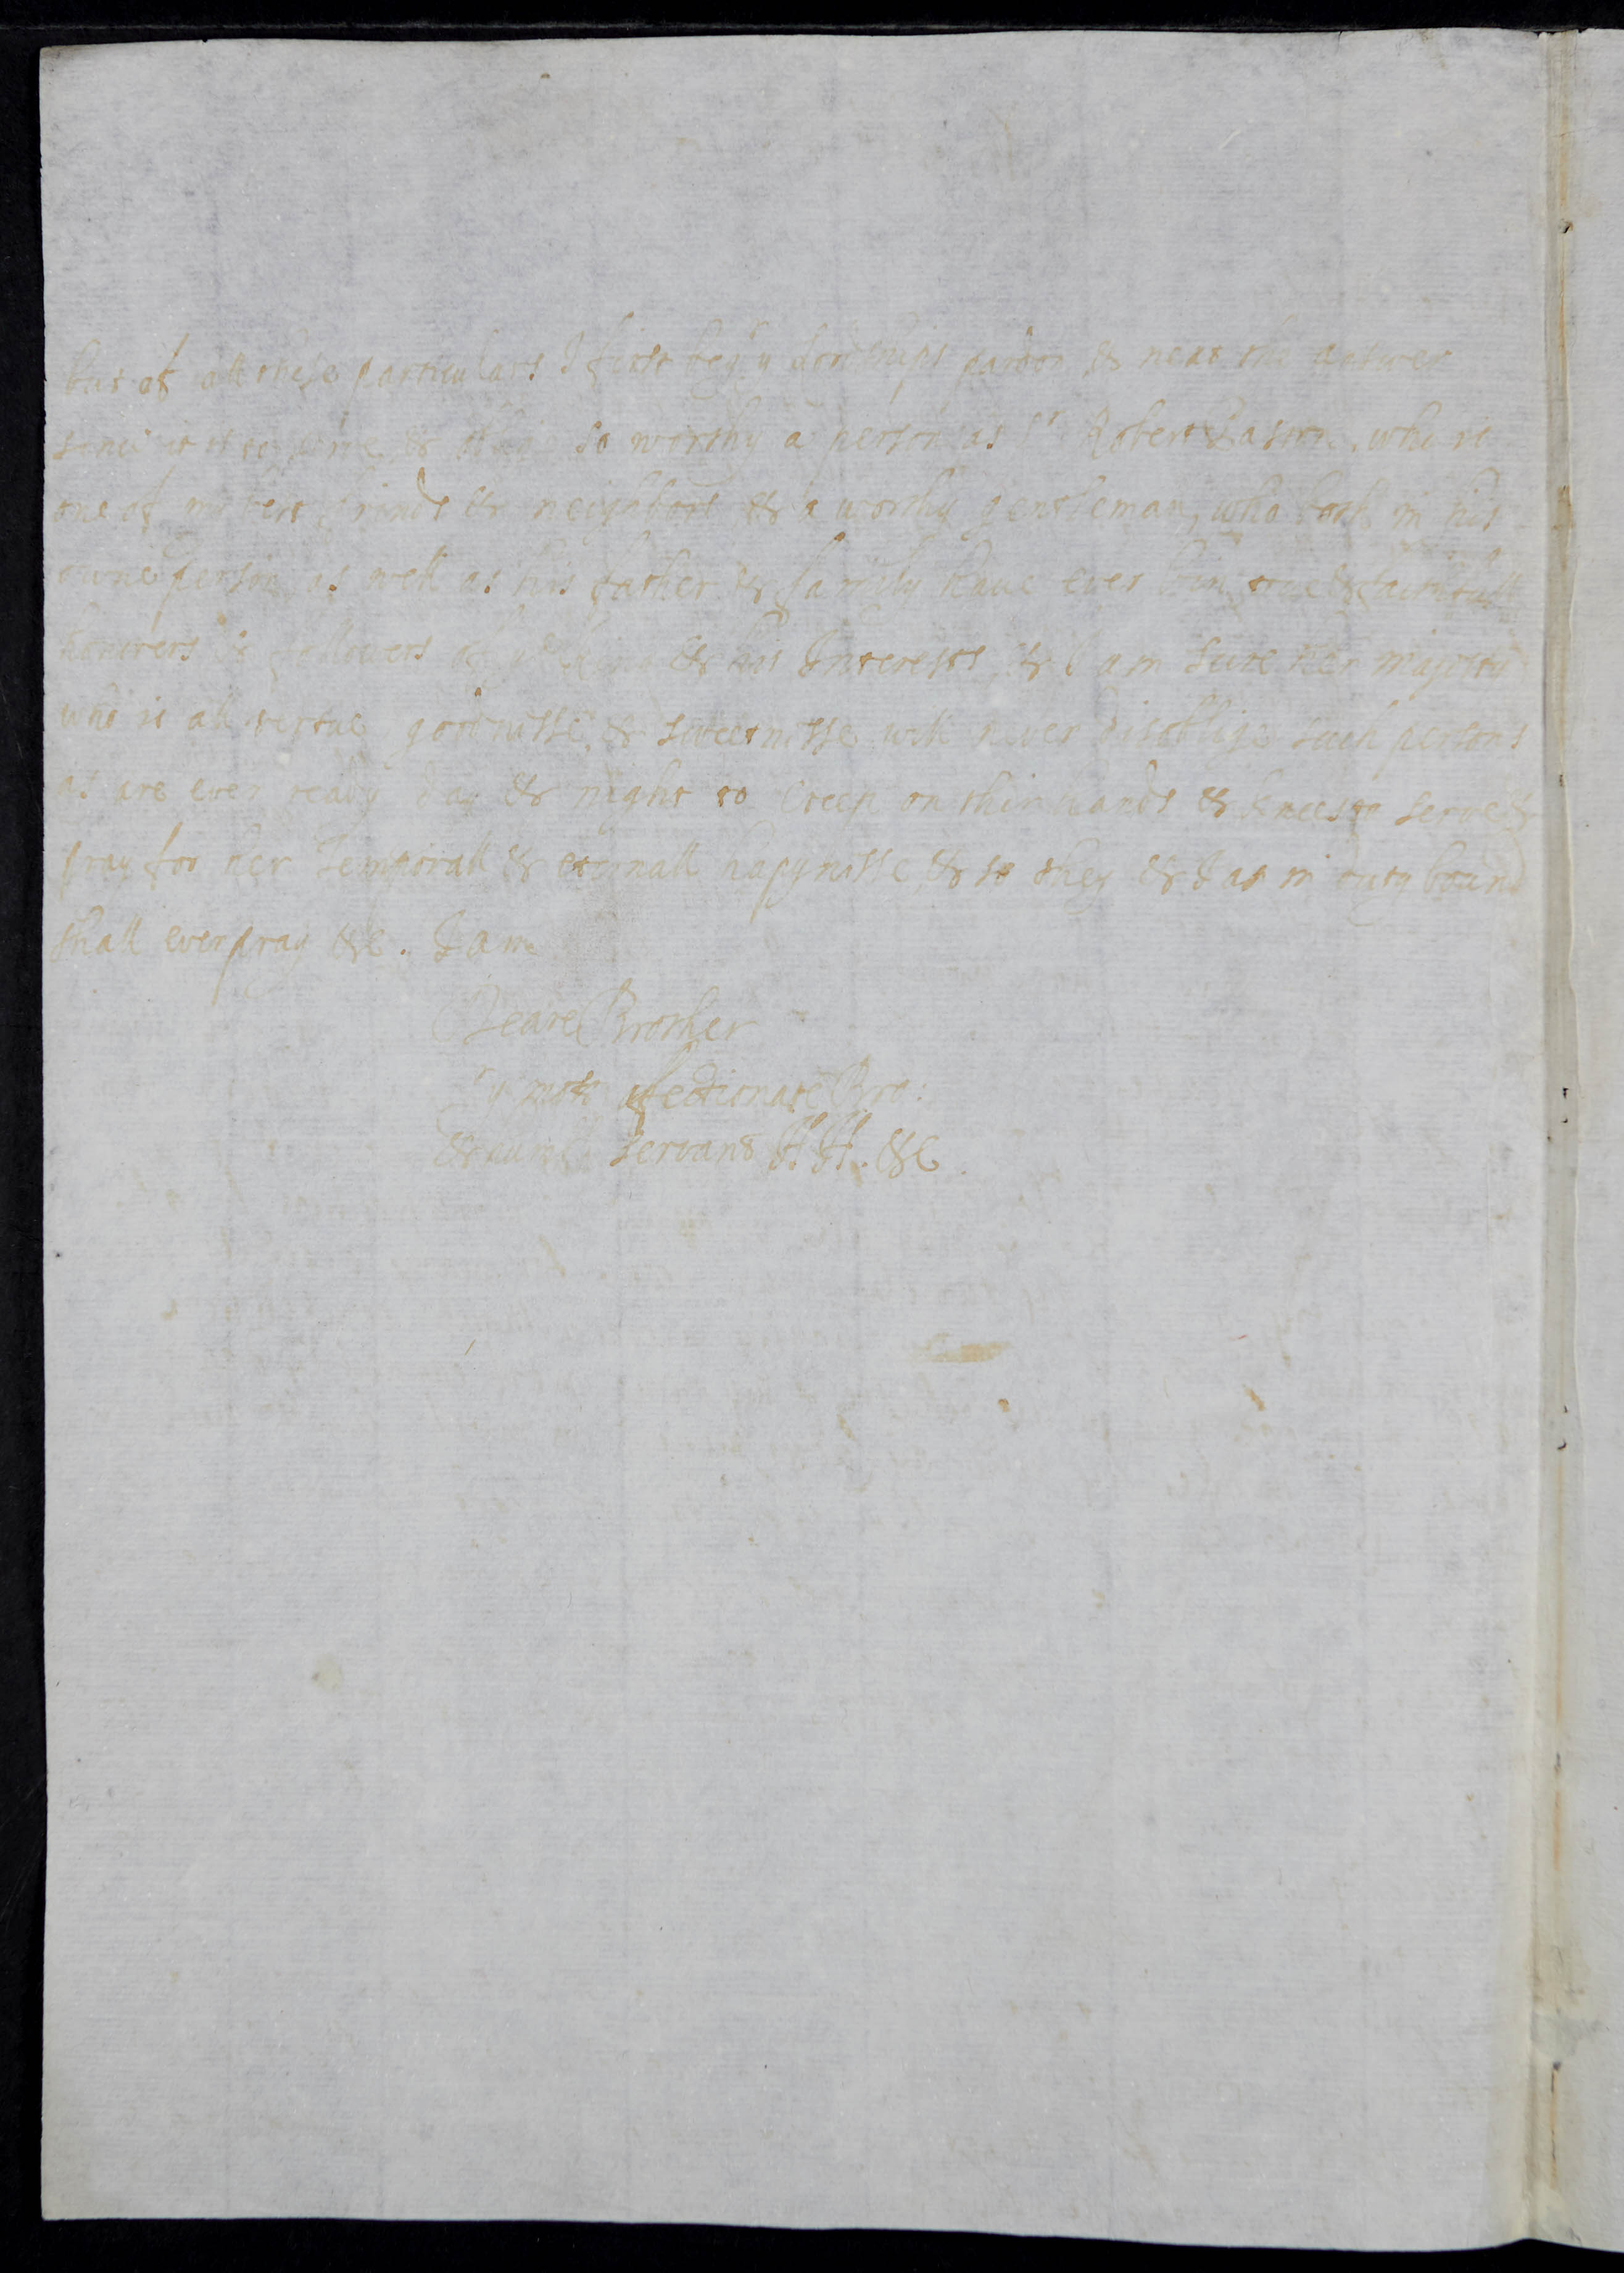 but of all these particulars I first beg yr Lordships pardon, & next the answer
since it is to serve & oblige so worthy a person as Sr Robert, who is
one of my best frinds & neighbors & a worthy gentleman, who both in his
owne person as well as his father & family have ever bin true & faithfull
honorers & followers of ye King & his Interests, & I am sure her majesty
who is all vertue goodnisse, & sweetnisse will never disoblige such persons
as are ever ready day & night to creep on their hands & knees to serve &
pray for her Temporall & eternall hapynisse, & so they & I as in duty bound
shall ever pray &c. I am
Deare Brother
yr most afectionate Bro:
& servant &c